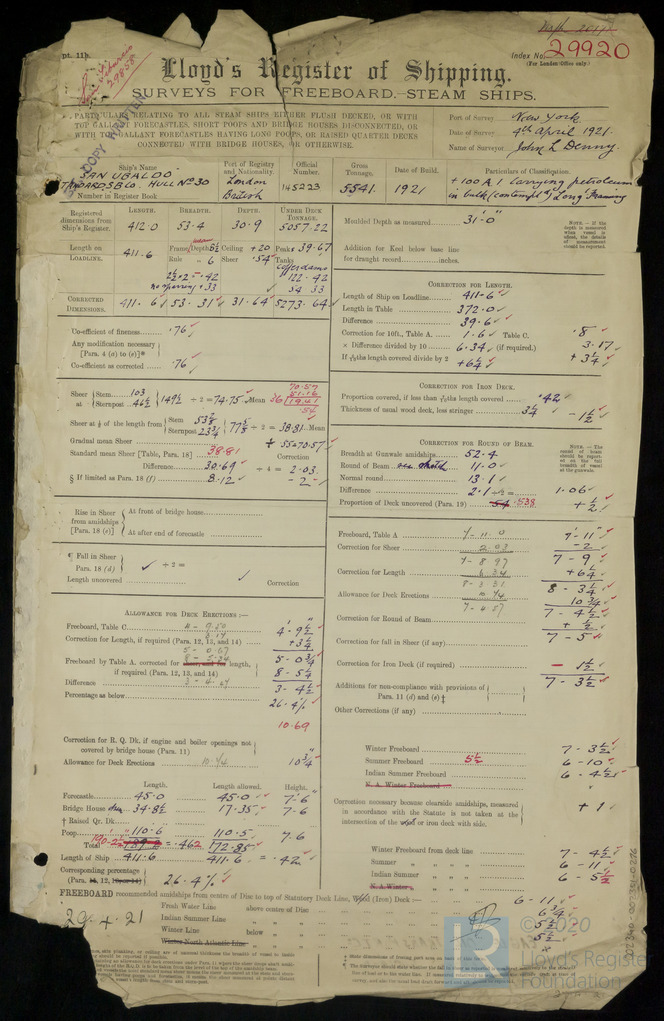 pt. 11b.
Index No. 29920
(For London Office only.)
Lloyd's Register of Shipping.
SURVEYS FOR FREEBOARD.—STEAM SHIPS.
PARTICULARS RELATING TO ALL STEAM SHIPS EITHER FLUSH DECKED, OR WITH
TOP GALLANT FORECASTLES, SHORT POOPS AND BRIDGE HOUSES DISCONNECTED, OR
WITH TOP GALLANT FORECASTLES HAVING LONG POOPS, OR RAISED QUARTER DECKS
CONNECTED WITH BRIDGE HOUSES, OR OTHERWISE.
Port of Survey New York
Date of Survey 4th April 1921.
Name of Surveyor John L Denny.
Ship's Name
SAN UBALDO
STANDARDSBCo. HULL No 30
Number in Register Book
Port of Registry and Nationality.
London
British
Official Number.
145223
Gross Tonnage.
5541.
Date of Build.
1921
Particulars of Classification.
+100 A.1 Carrying petroleum
in bulk (contempt d) Long l Framing
Registered dimensions from Ship's Register.
LENGTH. BREADTH. DEPTH. UNDER DECK TONNAGE.
412.0 53.4 30.9 5057.22
Length on LOADLINE. 411.6
Frame Depth 8½ Ceiling +20 Peaks 39.67
Rule 6 Sheer .54 Tanks
cofferdams
2½×2 = .42 122.42
no sparring +.33 54.33
CORRECTED DIMENSIONS. 411.6 53.31 31.64 5273.64
Moulded Depth as measured 31'.0"
NOTE.—If the depth is measured when vessel is afloat, the details of measurement should be reported.
Addition for Keel below base line
for draught record inches.
CORRECTION FOR LENGTH.
Length of Ship on Loadline 411.6
Length in Table 372.0
Difference 39.6
Correction for 10ft., Table A. 1.6 Table C. .8
× Difference divided by 10 6.34 (if required.) 3.17
If 6/10ths length covered divide by 2 +6¼ +3¼
Co-efficient of fineness .76
Any modification necessary [Para. 4 (a) to (e)]*
Co-efficient as corrected .76
CORRECTION FOR IRON DECK.
Proportion covered, if less than 7/10ths length covered .42
Thickness of usual wood deck, less stringer 3¼ - 1½
Sheer at Stem 103 Sternpost 46½ 149½ ÷ 2 = 74.75 Mean
70.57
51.16
36 19.41
.54
Sheer at ⅛ of the length from Stem 53⅞ Sternpost 23¾ 77⅝ ÷ 2 = 38.81 Mean
Gradual mean Sheer 55=70.57
Standard mean Sheer [Table, Para. 18] 38.81 Correction
Difference 30.69 ÷ 4 = 2.03
§ If limited as Para. 18 (f) 8.12 - 2
CORRECTION FOR ROUND OF BEAM.
Breadth at Gunwale amidships 52.4
Round of Beam 11.0
Normal round 13.1
Difference 2.1 ÷ 2 = 1.06
Proportion of Deck uncovered (Para. 19) .54 .538 + ½
Rise in Sheer from amidships [Para. 18 (e)] At front of bridge house
At after end of forecastle
¶ Fall in Sheer Para. 18 (d) ÷ 2 =
Length uncovered Correction
Freeboard, Table A 7-11.0 7-11
Correction for Sheer 2.03 - 2
7-8.97 7-9
Correction for Length 6.34 +6¼
8-3.31 8-3¼
Allowance for Deck Erections 10.74 10¾
7-4.57 7-4½
Correction for Round of Beam + ½
7-5
Correction for fall in Sheer (if any)
Correction for Iron Deck (if required) - 1½
7-3½
Additions for non-compliance with provisions of Para. 11 (d) and (e) †
Other Corrections (if any)
ALLOWANCE FOR DECK ERECTIONS:—
Freeboard, Table C. 4-9.50 4'-9½"
Correction for Length, if required (Para. 12, 13, and 14) 3.17 +3¼
5-0.67 5-0¾
Freeboard by Table A. corrected for length, if required (Para. 12, 13, and 14) 8-5.34 8-5¼
Difference 3-4.67 3-4½
Percentage as below 26.4%
10.69
Correction for R. Q. Dk, if engine and boiler openings not covered by bridge house (Para. 11)
Allowance for Deck Erections 10.74 10¾"
Length. Length allowed. Height.
Forecastle 45.0 45.0 7'.6"
Bridge House 34.8½ 17.35 7.6
† Raised Qr. Dk.
Poop 110.6 110.5 7.6
Total 190.2½ = .462 172.85
Length of Ship 411.6 411.6 = .42
Corresponding percentage (Para. 12, 13, or 14) 26.4%
Winter Freeboard 7-3½
Summer Freeboard 5½ 6-10
Indian Summer Freeboard 6-4½
N. A. Winter Freeboard
Correction necessary because clearside amidships, measured in accordance with the Statute is not taken at the intersection of the or iron deck with side. +1
Winter Freeboard from deck line 7-4½
Summer " " " " 6-11
Indian Summer " " " " 6-5½
N. A. Winter "
FREEBOARD recommended amidships from centre of Disc to top of Statutory Deck Line, (Iron) Deck:— 6-11
Fresh Water Line above centre of Disc 6¾
Indian Summer Line " 5½
Winter Line below " 5½
Winter North Atlantic Line "
29.4.21
LR
© 2020
Lloyd's Register
Foundation